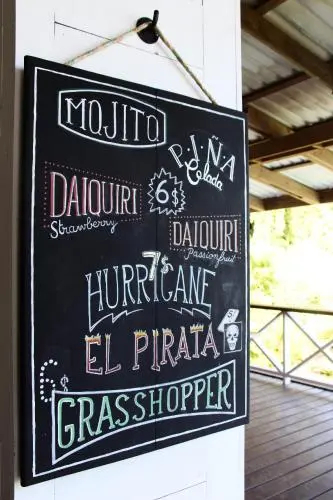 MOJITO
PIÑA
Colada
DAIQUIRI
Strawberry
6$
DAIQUIRI
Passionfruit
7$
HURRICANE
EL PIRATA
5/
6$
GRASSHOPPER